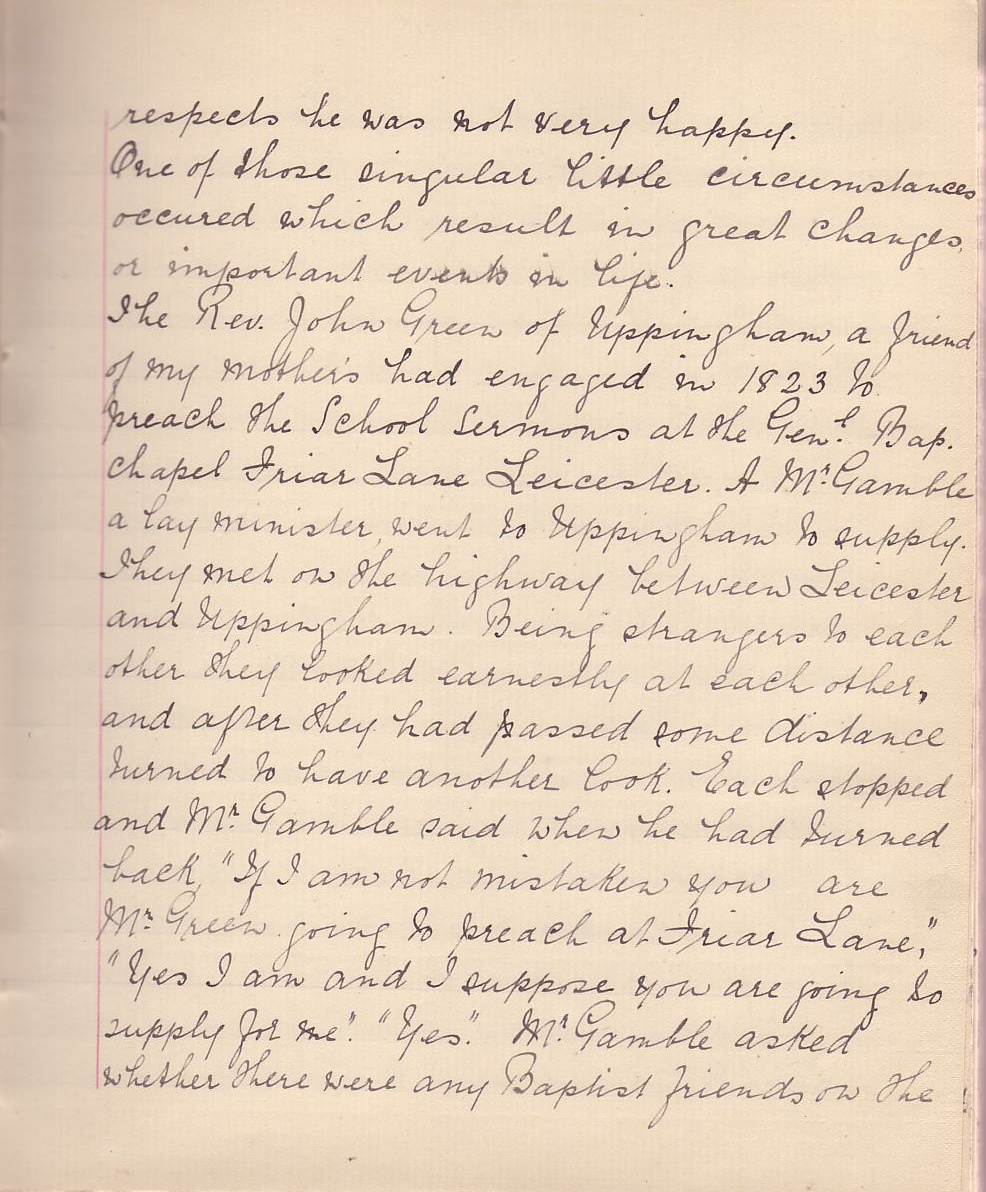 respects he was not very happy.
One of those singular little circumstances
occured which result in great changes,
or important events in life.
The Rev. John Green of Uppingham, a friend
of my mother's had engaged in 1823 to
preach the School Sermons at the Genl. Bap.
chapel Friar Lane Leicester. A Mr. Gamble
a lay minister, went to Uppingham to supply.
They met on the highway between Leicester
and Uppingham. Being strangers to each
other they looked earnestly at each other,
and after they had passed some distance
turned to have another look. Each stopped
and Mr. Gamble said when he had turned
back, "If I am not mistaken you are
Mr. Green going to preach at Friar Lane,"
"Yes I am and I suppose you are going to
supply for me". "Yes". Mr. Gamble asked
whether there were any Baptist friends on the